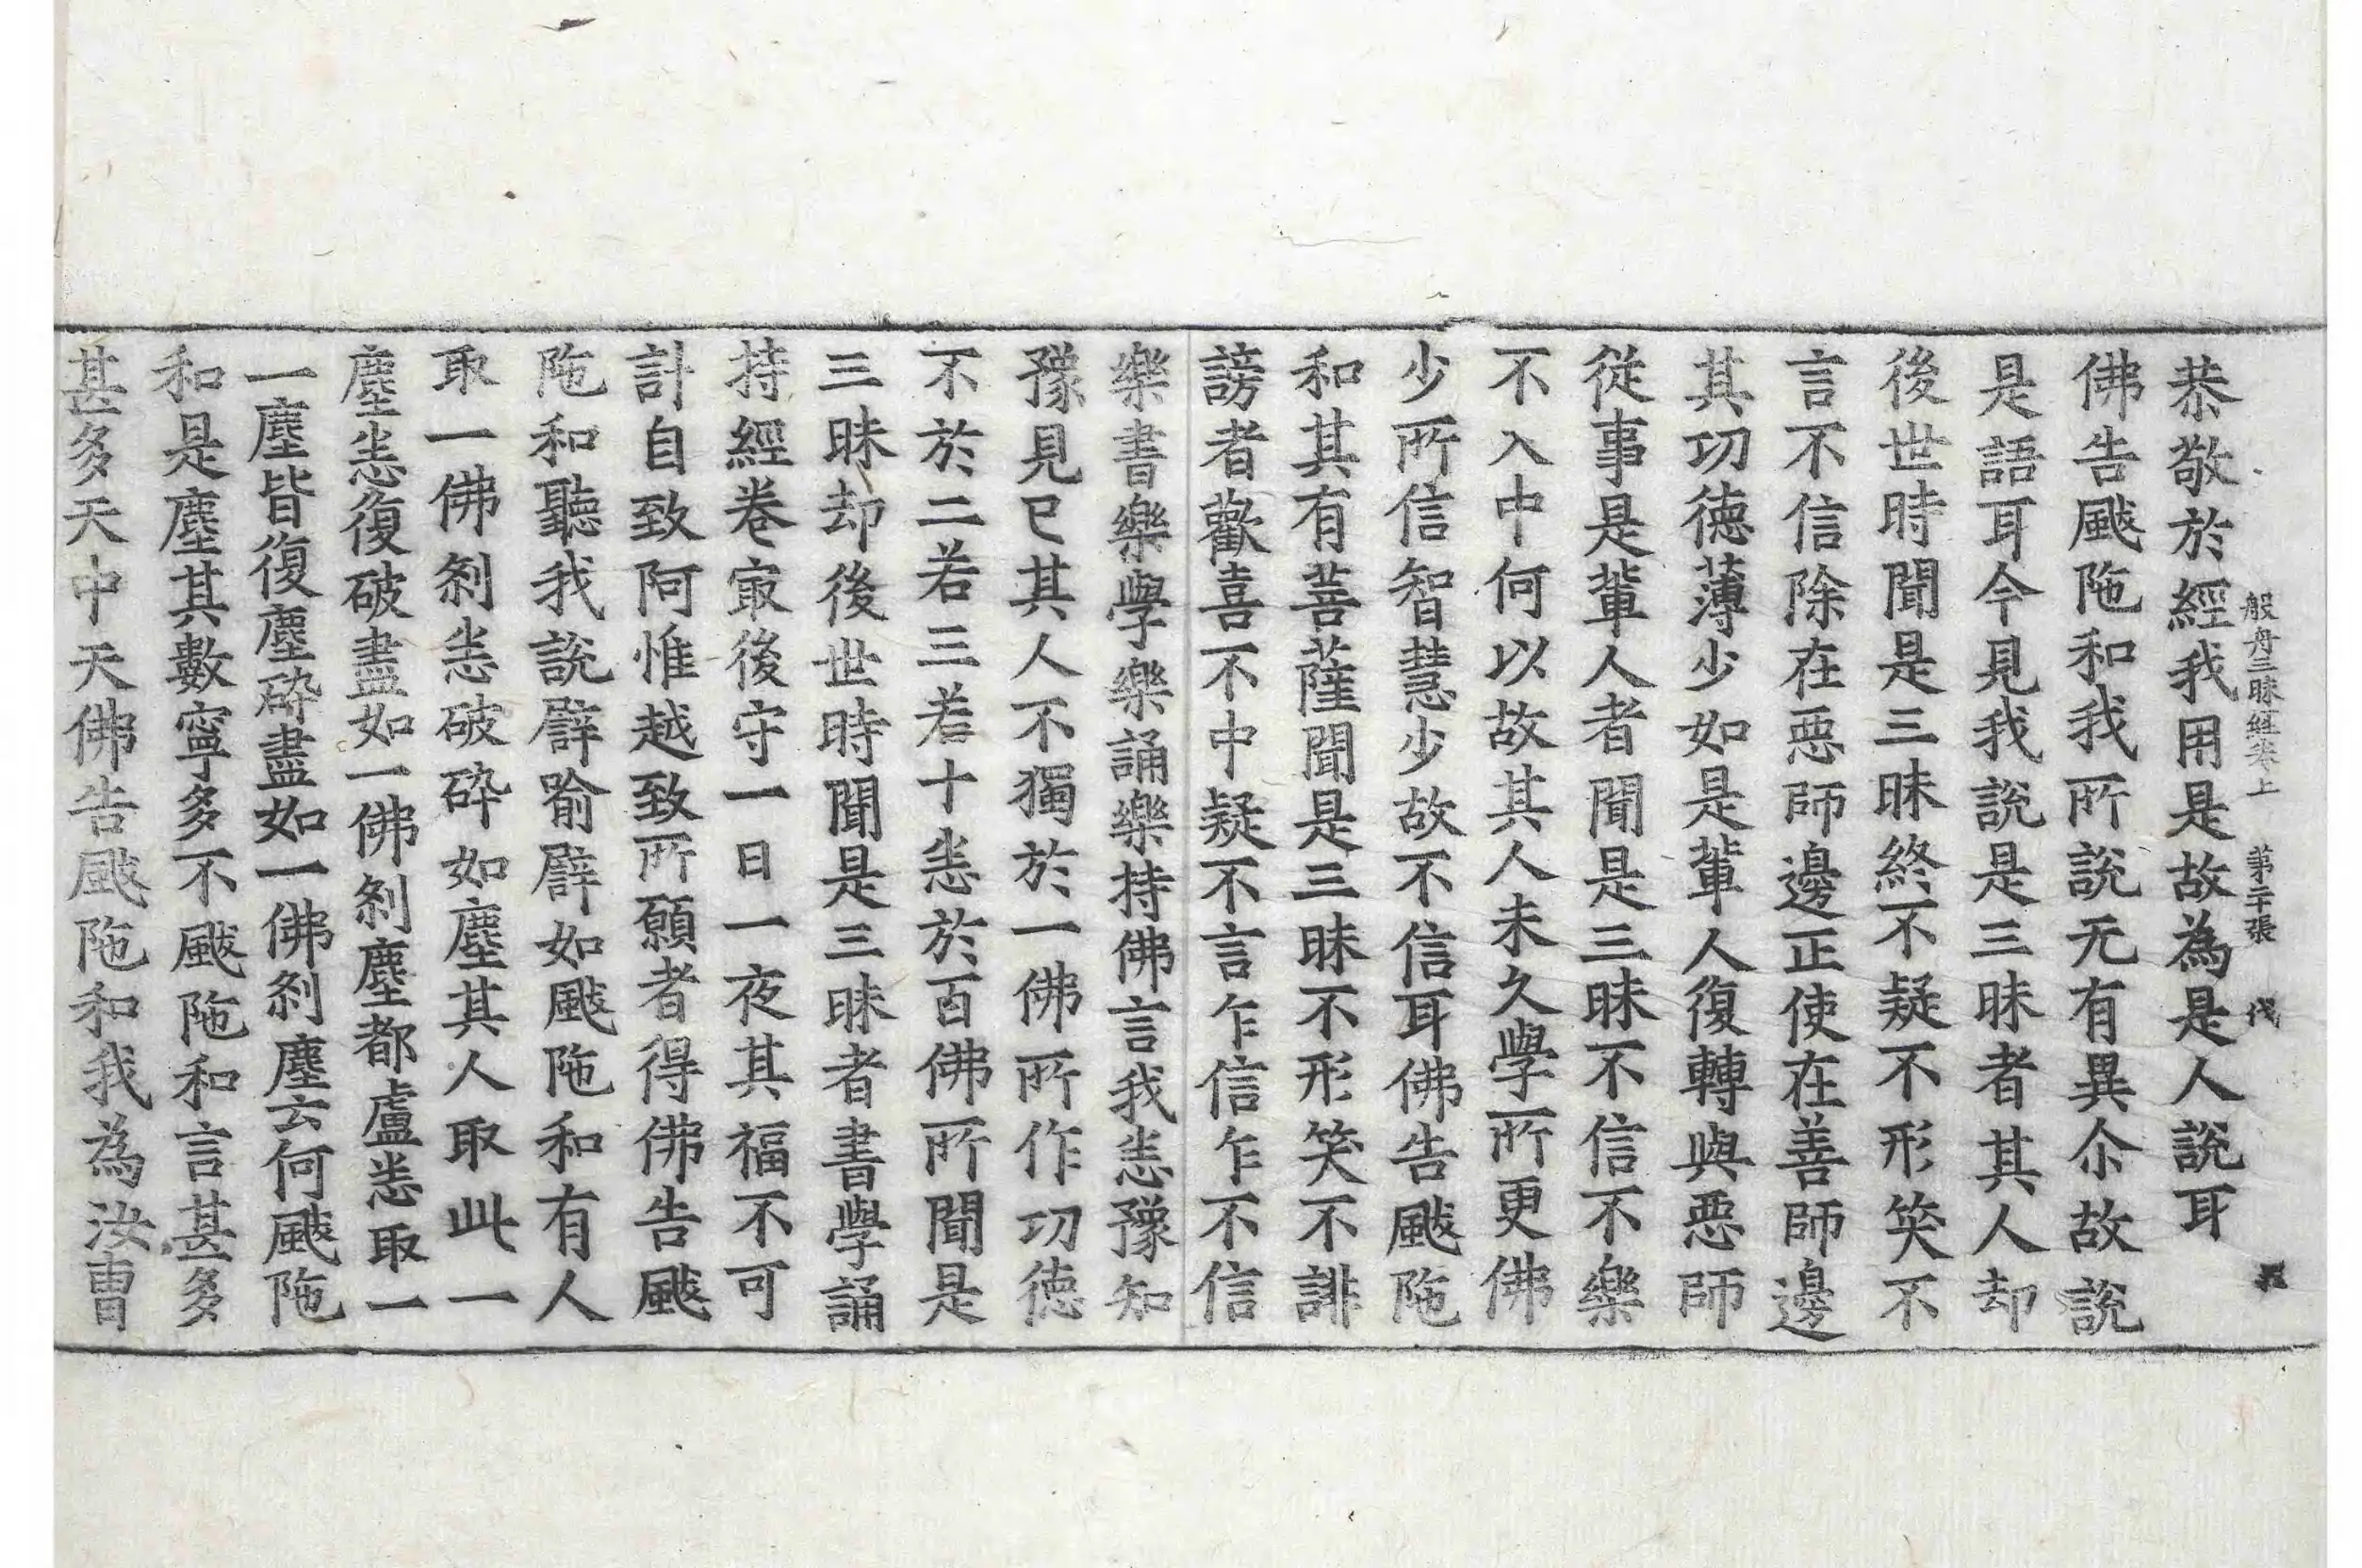 般舟三昧経卷上 第二十張 伐
恭敬於經我用是故為是人說耳
佛告颰陁和我所說无有異尒故說
是語耳今見我說是三昧者其人却
後世時聞是三昧終不疑不形笑不
言不信除在惡師邊正使在善師邊
其功德薄少如是輩人復轉與惡師
從事是輩人者聞是三昧不信不樂
不入中何以故其人未久學所更佛
少所信智慧少故不信耳佛告颰陁
和其有菩薩聞是三昧不形笑不誹
謗者歡喜不中疑不言乍信乍不信
樂書樂學樂誦樂持佛言我悉豫知
豫見已其人不獨於一佛所作功德
不於二若三若十悉於百佛所聞是
三昧却後世時聞是三昧者書學誦
持經卷㝡後守一日一夜其福不可
計自致阿惟越致所願者得佛告颰
陁和聽我說譬喻譬如颰陁和有人
取一佛剎悉破碎如塵其人取此一
塵悉復破盡如一佛剎塵都盧悉取一
一塵皆復塵碎盡如一佛剎塵云何颰陁
和是塵其數寧多不颰陁和言甚多
甚多天中天佛告颰陁和我為汝曹